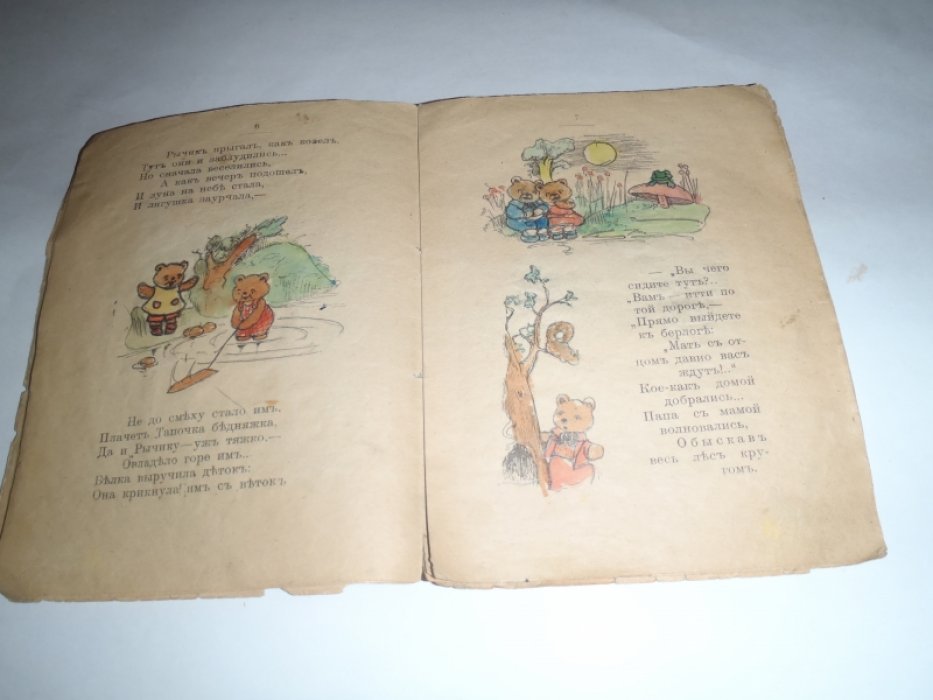 6
Рычикъ прыгалъ, какъ козелъ,
Тутъ они и заблудились...
Но сначала веселились,
А какъ вечеръ подошелъ,
И луна на небѣ стала,
И лягушка заурчала,—
Не до смѣху стало имъ.
Плачетъ Тапочка бѣдняжка,
Да и Рычику—ужъ тяжко.—
Овладѣло горе имъ...
Бѣлка выручила дѣтокъ:
Она крикнула имъ съ вѣтокъ
7
— „Вы чего
сидите тутъ?..
„Вамъ—итти по
той дорогѣ,—
„Прямо выйдете
къ берлогѣ:
„Мать съ от-
цомъ давно васъ
ждутъ!.."
Кое-какъ домой
добрались...
Папа съ мамой
волновались,
Обыскавъ
весь лѣсъ кру-
гомъ.